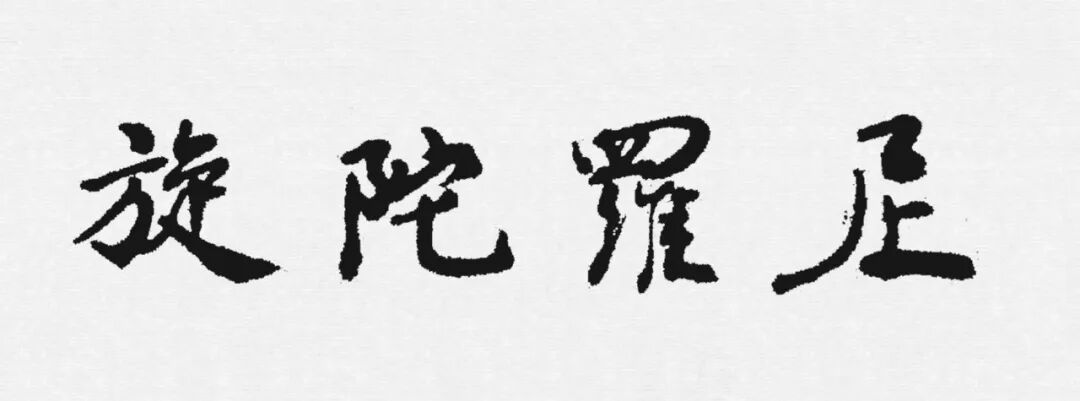 旋陀羅尼